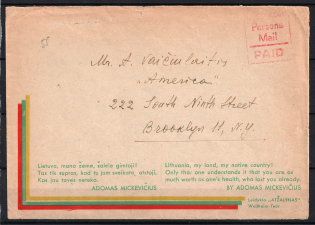 58
Persons
Mail
PAID
Mr. A. Vaičiulaitis
"America"
222 South Ninth Street
Brooklyn 11, N.Y.
Lietuva, mano žeme, šalele gimtoji!
Tas tik supras, kad tu jam sveikata, atstoji,
Kas jau tavęs neteko.
ADOMAS MICKEVIČIUS
Lithuania, my land, my native country!
Only that one understands it that you are as
much worth as one's health, who lost you already.
BY ADOMAS MICKEVIČIUS